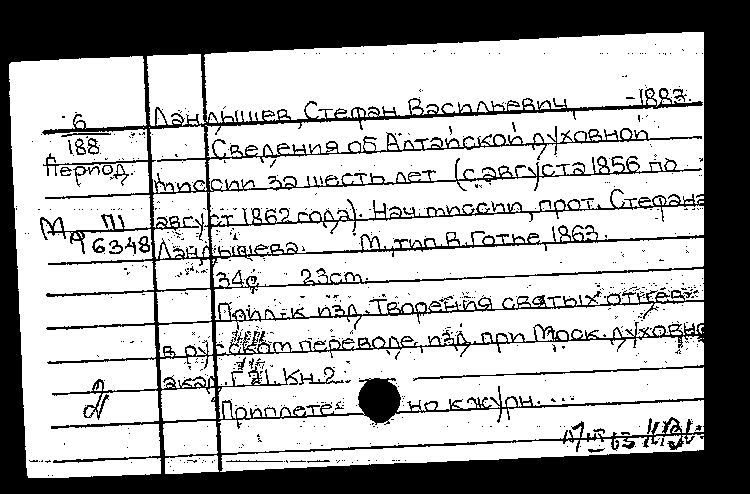 6 Ландышев, Стефан Васильевич, -1883.
188 Сведения об Алтайской духовной
Период. миссии за шесть лет (с августа 1856 по
МФ III август 1862 года). Нач. миссии, прот. Стефана
16348 Ландышева. М., тип. В. Готье, 1863.
34с 23cm.
Прил. к изд. Творения святых отцев
в русском переводе, изд. при Моск. духовно
акад. Г. 21. Кн. 2
но к журн. ...